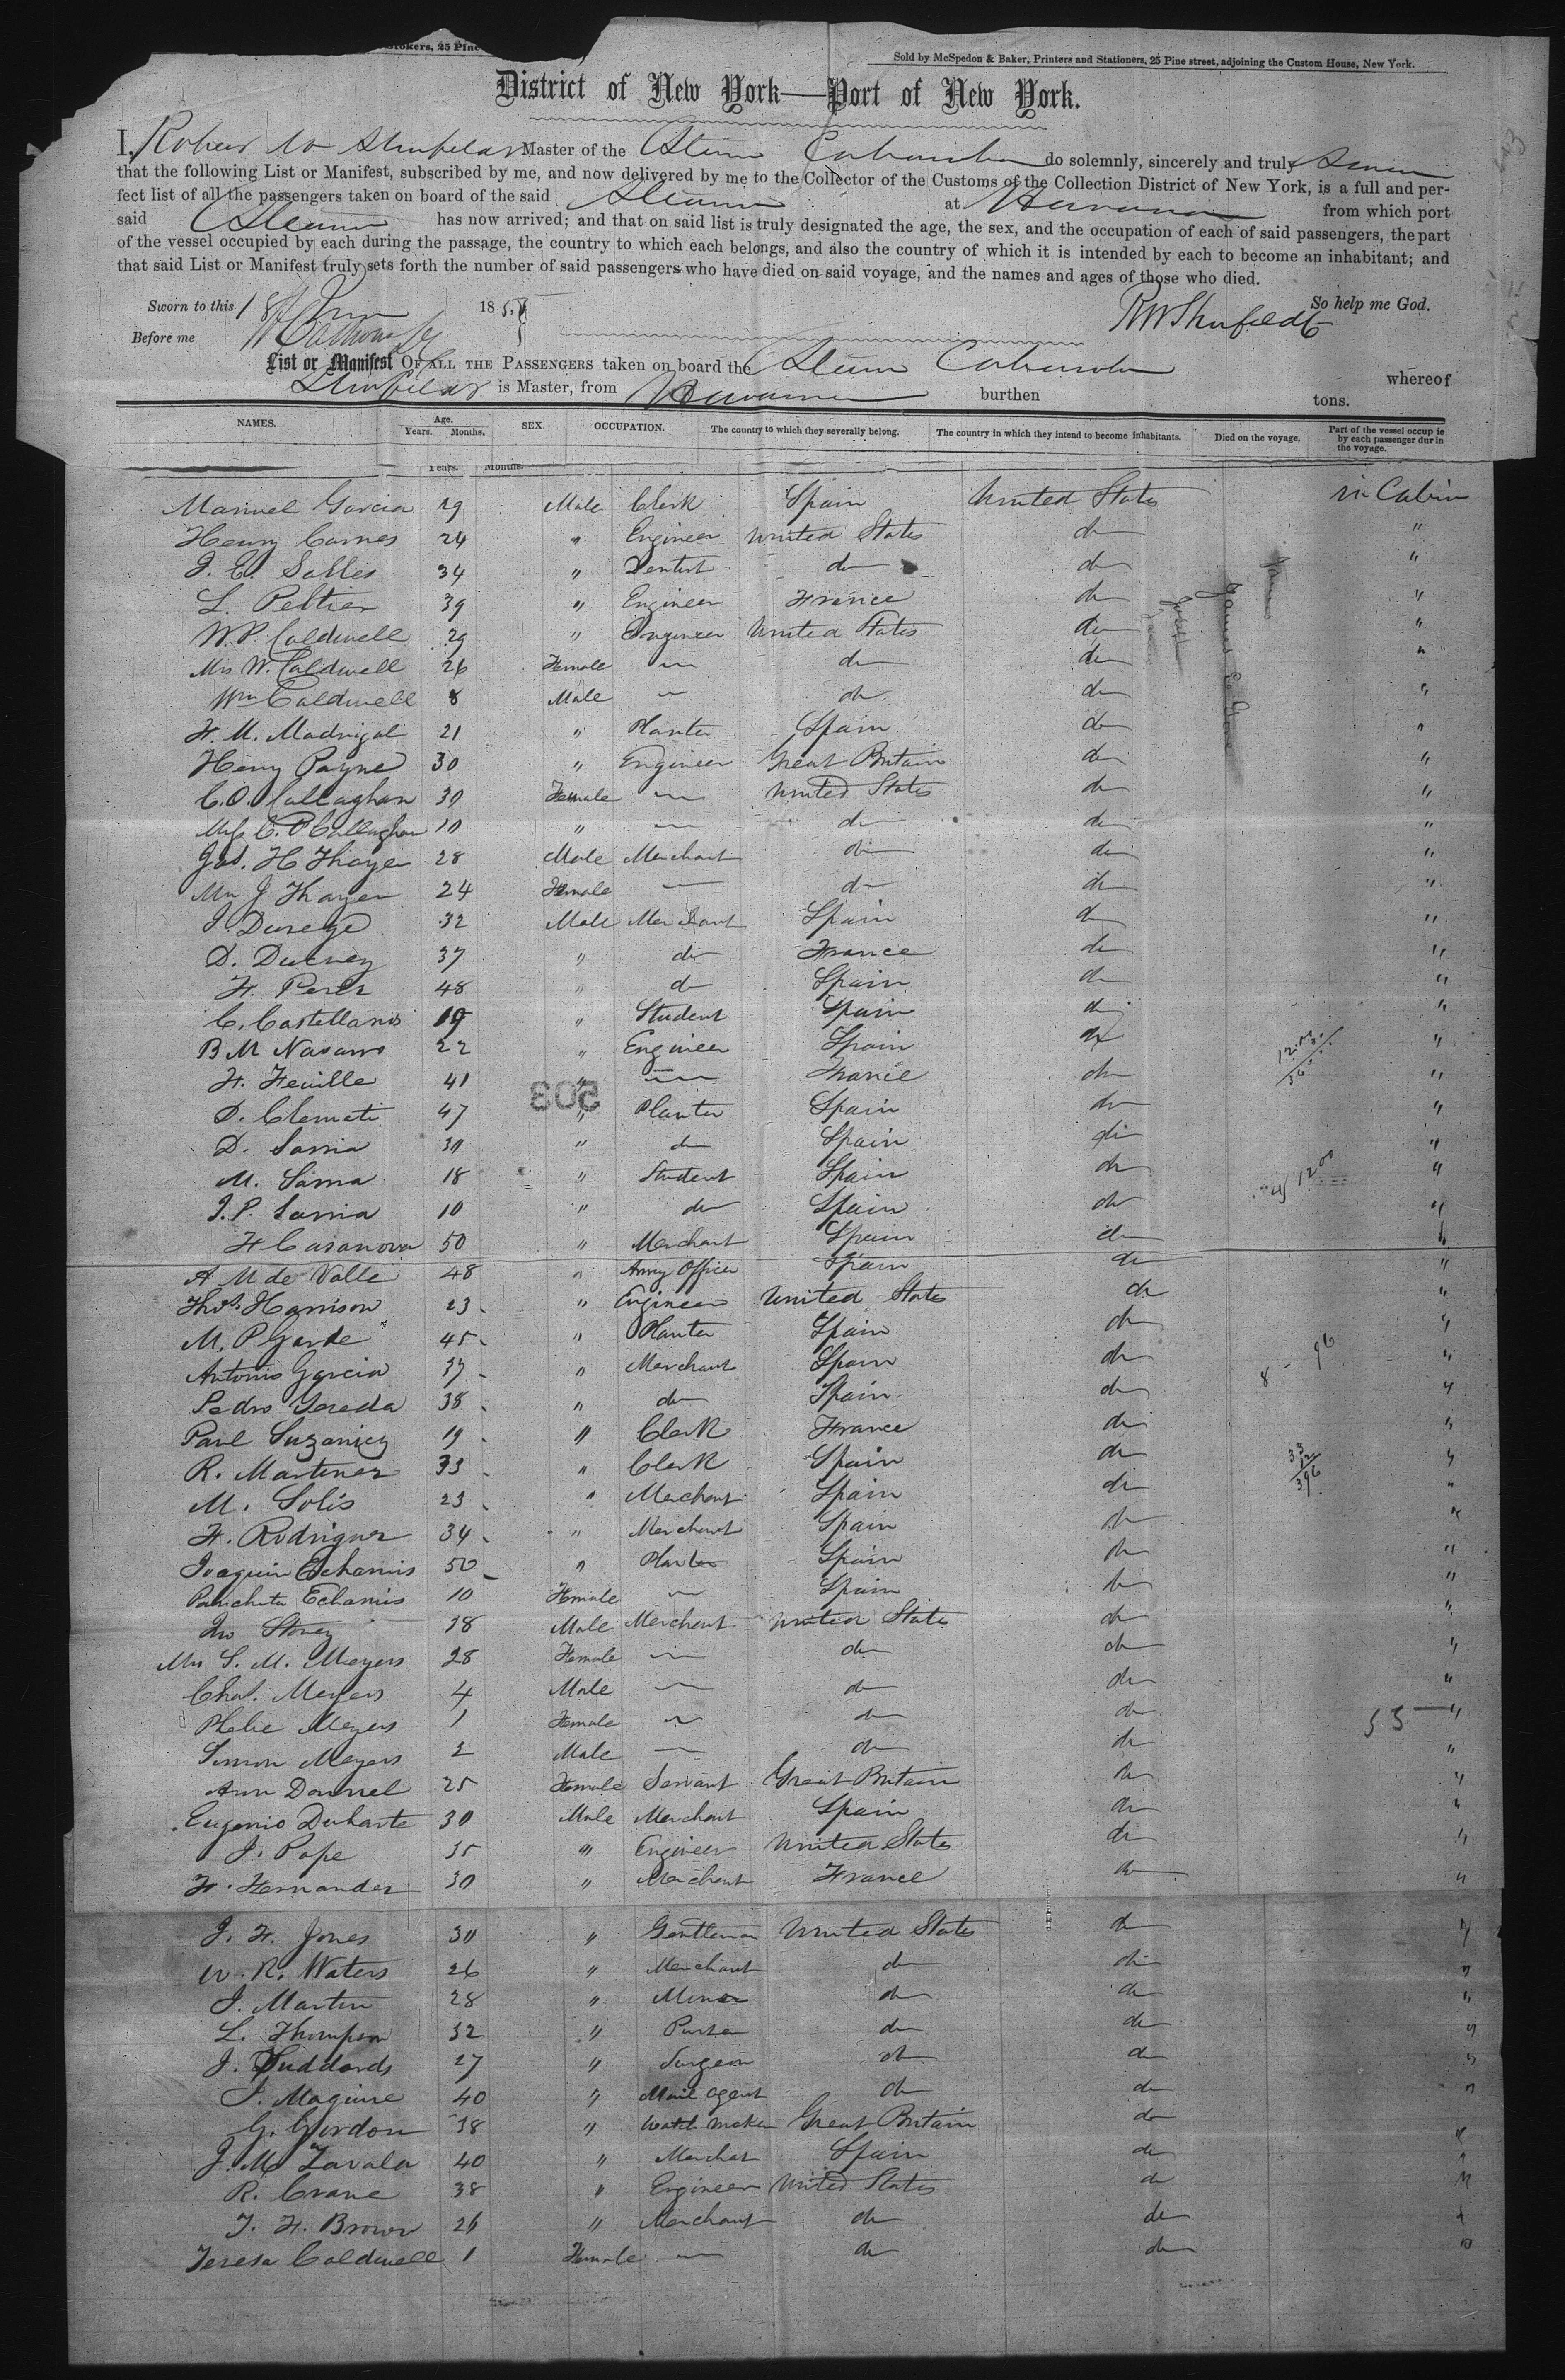 Brokers, 25 Pine
Sold by McSpedon & Baker, Printers and Stationers, 25 Pine street, adjoining the Custom House, New York.
District of New York—Port of New York.
I, Robert W Shufeldt Master of the Steam Cahawba do solemnly, sincerely and truly Swear
that the following List or Manifest, subscribed by me, and now delivered by me to the Collector of the Customs of the Collection District of New York, is a full and per-
fect list of all the passengers taken on board of the said Steamer at Havana from which port
said Steamer has now arrived; and that on said list is truly designated the age, the sex, and the occupation of each of said passengers, the part
of the vessel occupied by each during the passage, the country to which each belongs, and also the country of which it is intended by each to become an inhabitant; and
that said List or Manifest truly sets forth the number of said passengers who have died on said voyage, and the names and ages of those who died.
So help me God.
Sworn to this 18 185
RW Shufeldt
Before me
List or Manifest OF ALL THE PASSENGERS taken on board the Steam Cahawba whereof
Shufeldt is Master, from Havana burthen tons.
NAMES. Age. Years. Months. SEX. OCCUPATION. The country to which they severally belong. The country in which they intend to become inhabitants. Died on the voyage. Part of the vessel occup ie by each passenger dur in the voyage.
Years. Months.
Manuel Garcia 29 Male Clerk Spain United States in Cabin
Henry Carnes 24 " Engineer United States do "
J. E. Salles 34 " Dentist do do "
L. Peltier 39 " Engineer France do "
W. P. Caldwell 29 " Engineer United States do "
Mrs W. Caldwell 26 Female — do do "
Wm Caldwell 8 Male — do do "
F. M. Madrigal 21 " Planter Spain do "
Henry Payne 30 " Engineer Great Britain do "
C. O. Callaghan 30 Female — United States do "
Miss C. O Callaghan 10 " — do do "
Jas. H Thayer 28 Male Merchant do do "
Mrs J Thayer 24 Female — do do "
J. Durege 32 Male Merchant Spain do "
D. Ducney 37 " do France do "
F. Perez 48 " do Spain do "
C. Castellanos 19 " Student Spain do "
B M Navarro 22 " Engineer Spain do "
F. Feuille 41 " — France do "
D. Clemati 47 " Planter Spain do "
D. Sarria 30 " do Spain do "
M. Sarria 18 " Student Spain do "
J. P. Sarria 10 " do Spain do "
F Casanova 50 " Merchant Spain do "
A M de Valle 48 " Army Officer Spain do "
Thos. Harrison 23 " Engineer United States do "
M. P Garde 45 " Planter Spain do "
Antonio Garcia 37 " Merchant Spain do "
Pedro Tereda 38 " do Spain do "
Paul Suzanicy 19 " Clerk France do "
R. Martinez 33 " Clerk Spain do "
M. Solis 23 " Merchant Spain do "
F. Rodriguez 34 " Merchant Spain do "
Joaquin Echamis 50 " Planter Spain do "
Panchita Echamis 10 Female — Spain do "
Jno Storey 38 Male Merchant United State do "
Mrs S. M. Meyers 28 Female — do do "
Chas. Meyers 4 Male — do do "
Phebe Meyers 1 Female — do do "
Simon Meyers 2 Male — do do "
Ann Donnel 25 Female Servant Great Britain do "
Eugenio Duharte 30 Male Merchant Spain do "
J. Pope 35 " Engineer United States do "
F. Hernandez 30 " Merchant France do "
J. F. Jones 30 " Gentleman United States do "
W. R. Waters 26 " Merchant do do "
J. Martin 28 " Miner do do "
L. Thompson 32 " Purser do do "
J. Suddards 27 " Surgeon do do "
J. Maguire 40 " Mail agent do do "
G. Gordon 38 " Watch maker Great Britain do "
J. M Zavala 40 " Merchat Spain do "
R. Crane 38 " Engineer United States do "
T. F. Brown 26 " Merchant do do "
Teresa Caldwell 1 Female — do do "
203
8 - 96
33
12
396
55